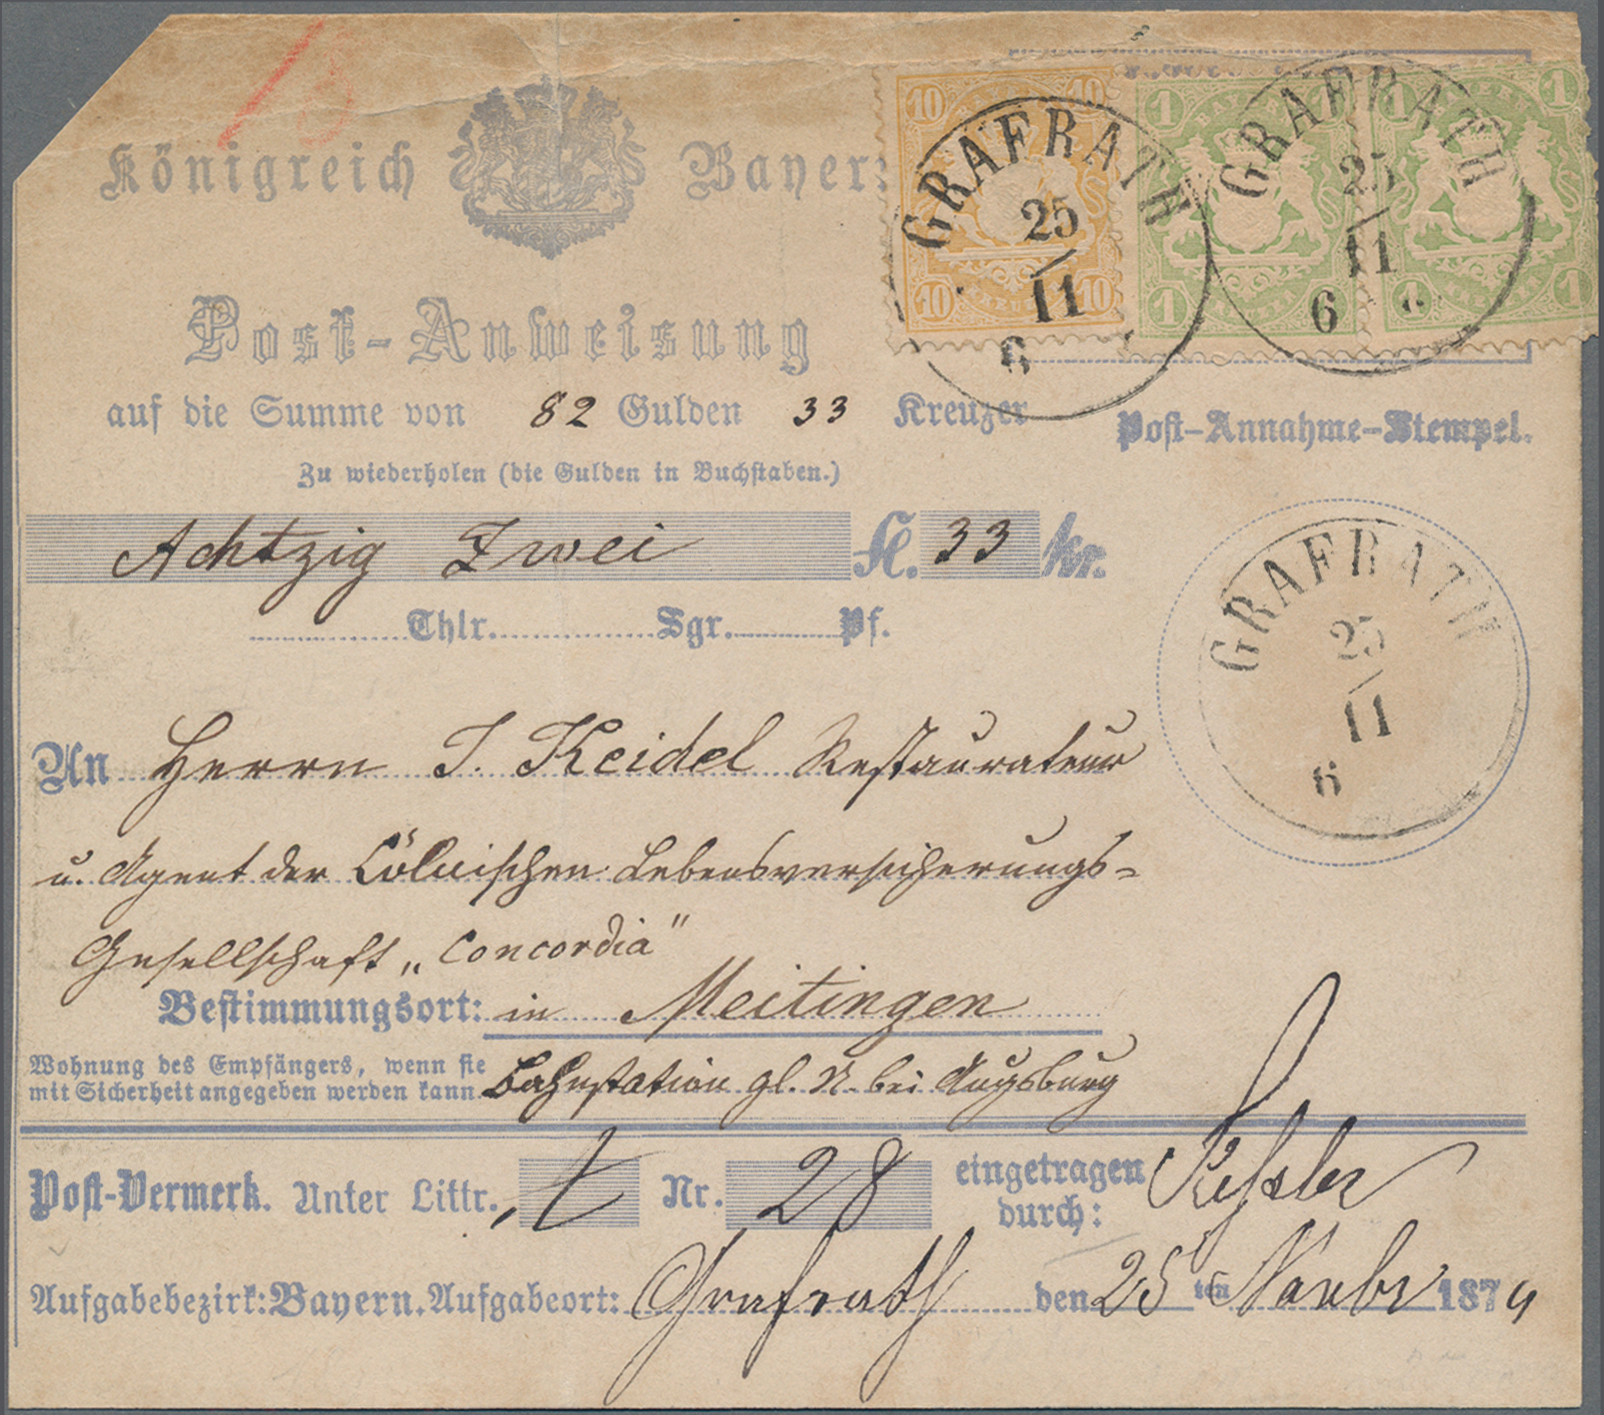 Königreich Bayern
10 10 1 1 1 1
GRAFRATH 25/11 6
GRAFRATH 25/11 6
10 10 1 1 1 1
Post-Anweisung
auf die Summe von 82 Gulden 33 Kreuzer
Post-Annahme-Stempel.
Zu wiederholen (die Gulden in Buchstaben.)
Achtzig Zwei fl. 33 kr.
Thlr. Sgr. Pf.
GRAFRATH 25/11 6
An Herrn J. Keidel Restaurateur
u. Agent der Cölnischen Lebensversicherungs-
Gesellschaft „Concordia"
Bestimmungsort: in Meitingen
Wohnung des Empfängers, wenn sie
mit Sicherheit angegeben werden kann. Bahnstation gl. N. bei Augsburg
Post-Vermerk. Unter Littr. Nr. 28 eingetragen
durch:
Aufgabebezirk: Bayern. Aufgabeort: Grafrath den 25 ten Novbr 1874